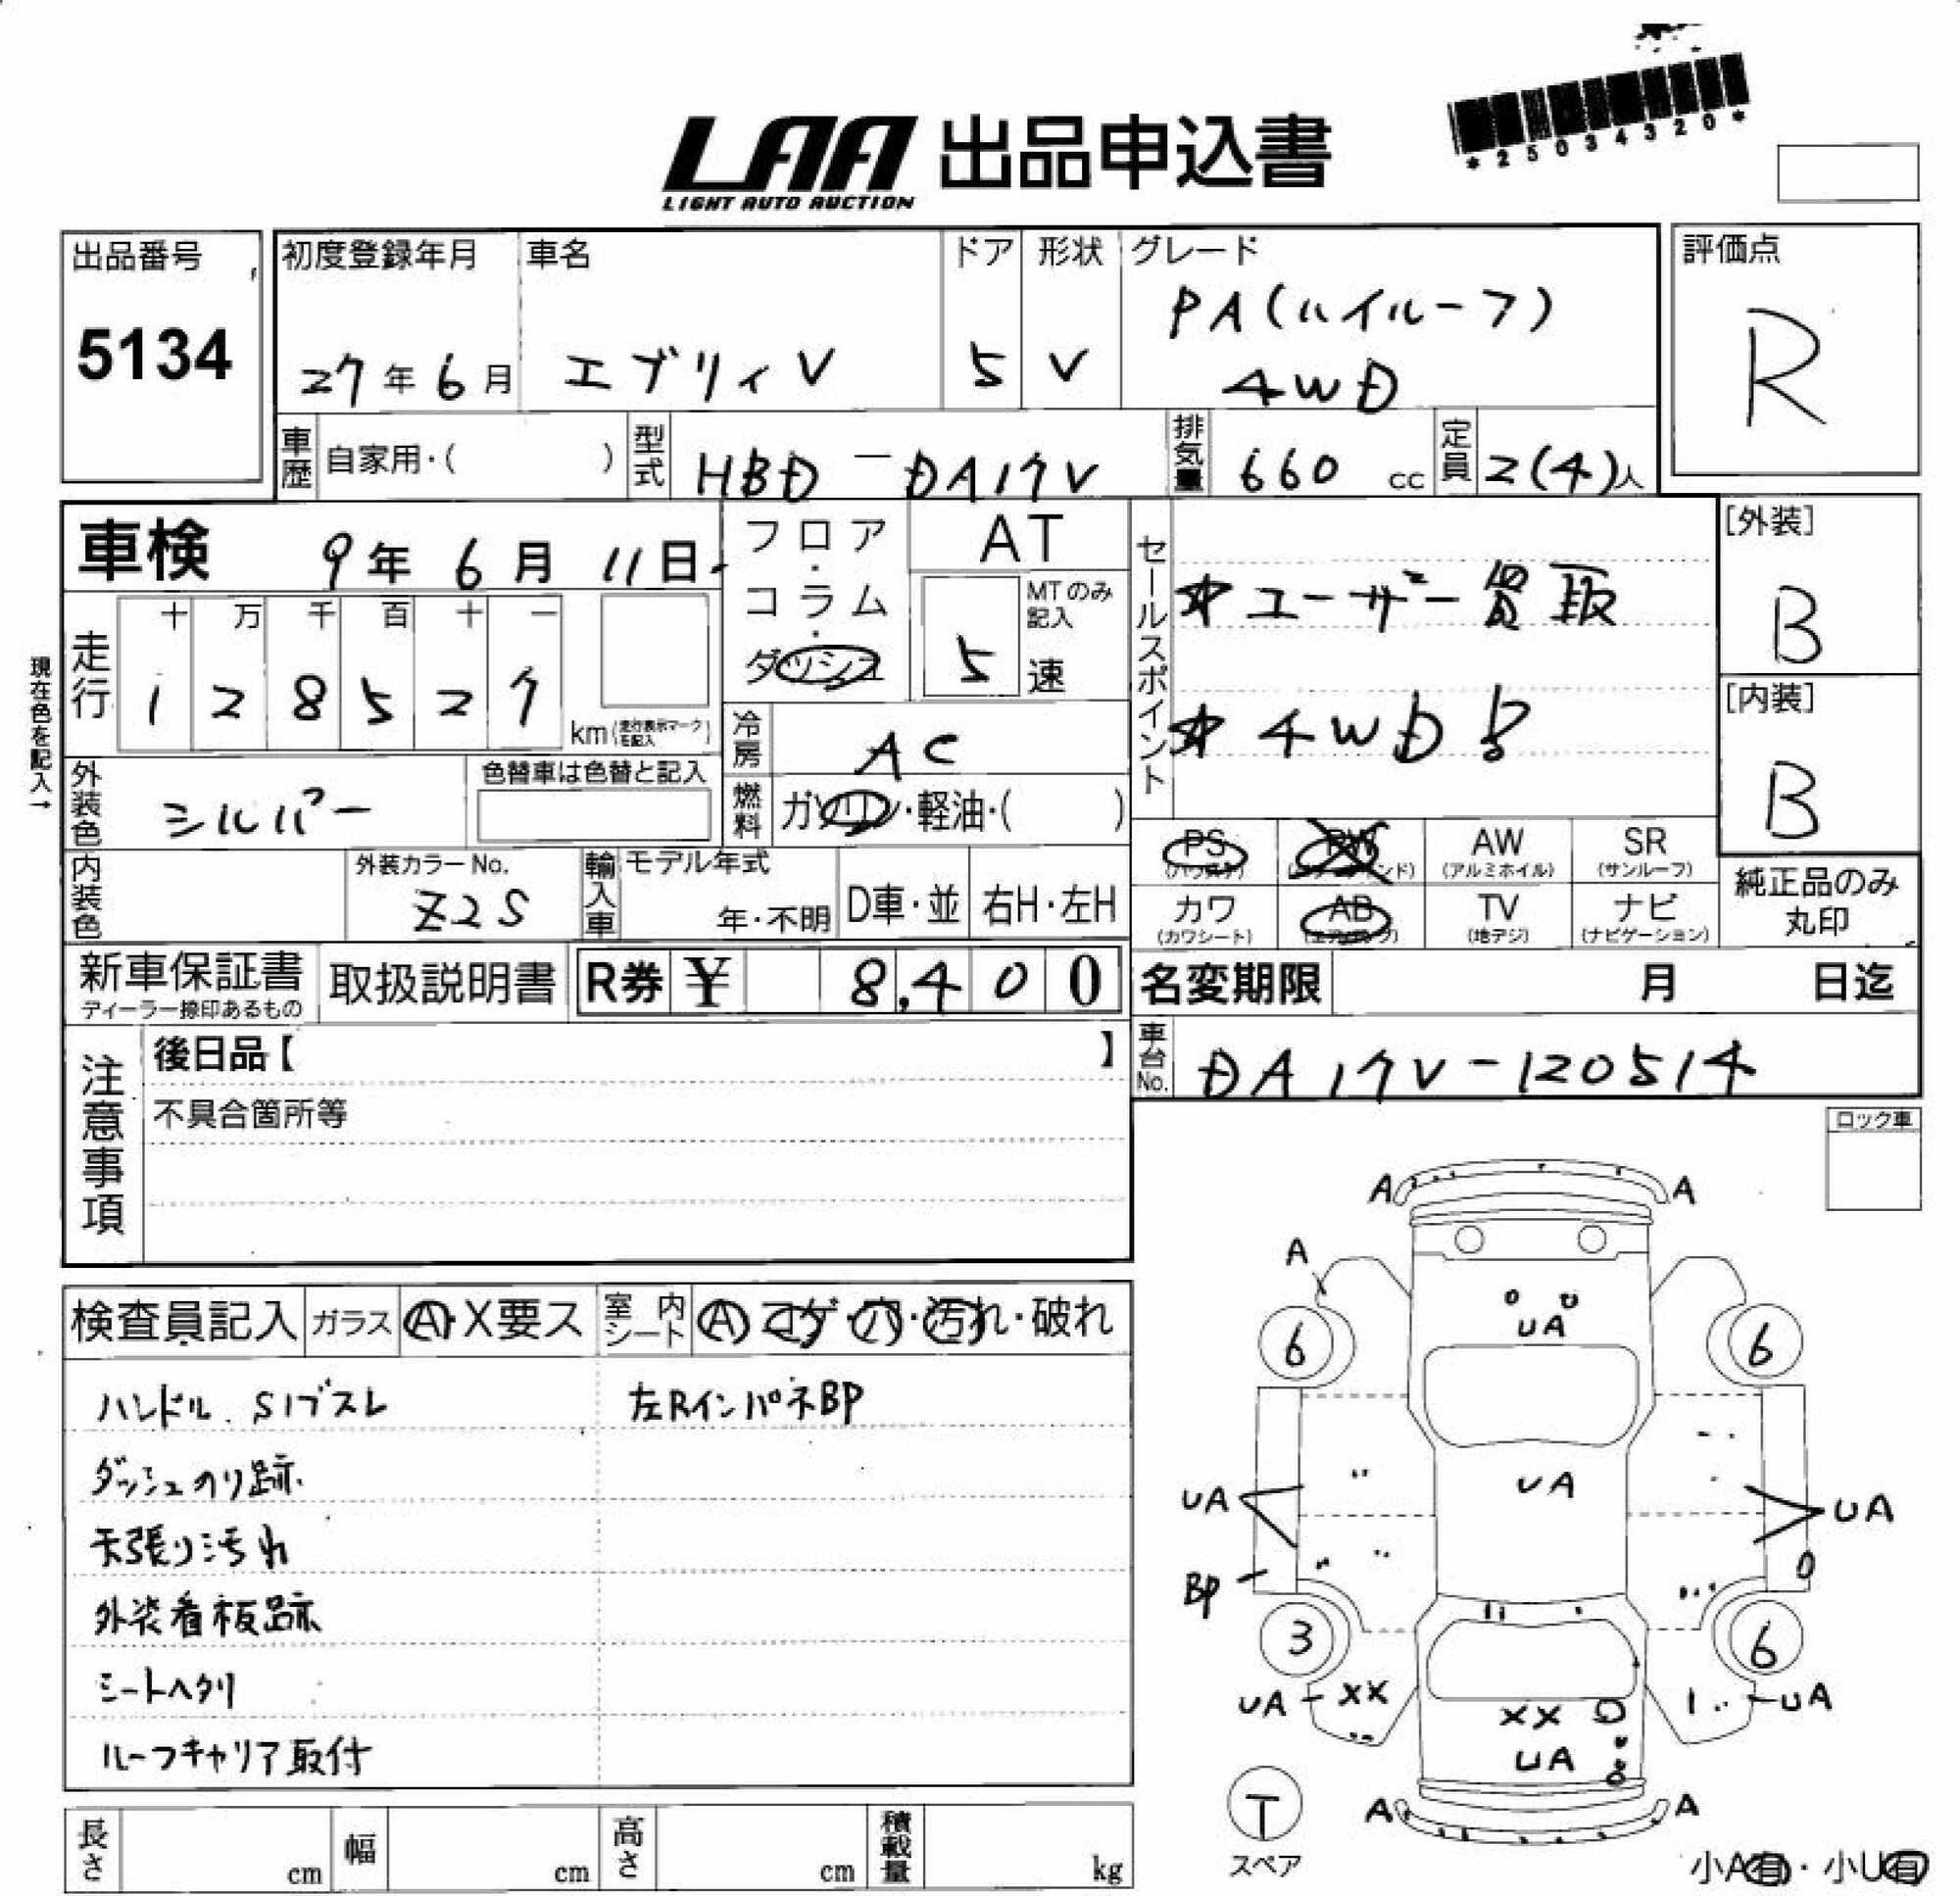 LAA 出品申込書
LIGHT AUTO AUCTION
*25034320*
出品番号
5134
初度登録年月
27年6月
車名
エブリィV
ドア
5
形状
V
グレード
PA(ハイルーフ)
4WD
評価点
R
車歴
自家用・( )
型式
HBD-DA17V
排気量
660 cc
定員
2(4)人
車検 9年6月11日
フロア・コラム・ダッシュ
AT
MTのみ記入
5速
セールスポイント
☆ユーザー買取
☆4WD
[外装]
B
[内装]
B
現在色を記入→
走行
十 万 千 百 十 一
1 2 8 5 2 7
km(走行表示マークを記入)
冷房
AC
外装色
シルバー
色替車は色替と記入
燃料
ガソリン・軽油・( )
PS AW SR
(パワステ) (アルミホイル) (サンルーフ)
PW
カワ AB TV ナビ
(カワシート) (エアバッグ) (地デジ) (ナビゲーション)
純正品のみ丸印
内装色
外装カラーNo.
Z2S
輸入車
モデル年式
年・不明
D車・並
右H・左H
新車保証書
ディーラー捺印あるもの
取扱説明書
R券 ¥ 8,400
名変期限 月 日迄
車台No.
DA17V-120514
注意事項
後日品【 】
不具合箇所等
ロック車
検査員記入
ガラス
A・X要ス
室内シート
A コゲ・穴・汚れ・破れ
ハンドル、S1ブスレ
左RインパネBP
ダッシュのり跡
天張り汚れ
外装看板跡
シートヘタリ
ルーフキャリア取付
A A
A
UA
6 6
UA
UA UA
BP
3 6
UA XX UA
XX
UA
T
スペア
A A
小A有・小U有
長さ cm
幅 cm
高さ cm
積載量 kg